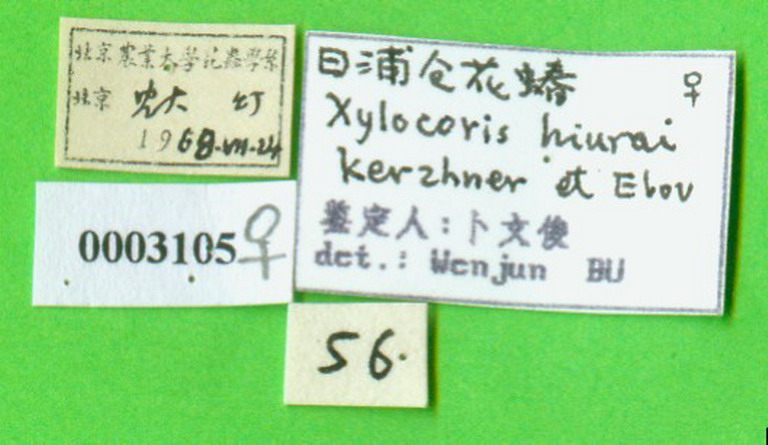 北京农业大学昆虫学系
北京 灯
1968.VII.24
0003105♀
日浦仓花蝽 ♀
Xylocoris hiurai
Kerzhner et Elov
鉴定人:卜文俊
det.: Wenjun BU
56.